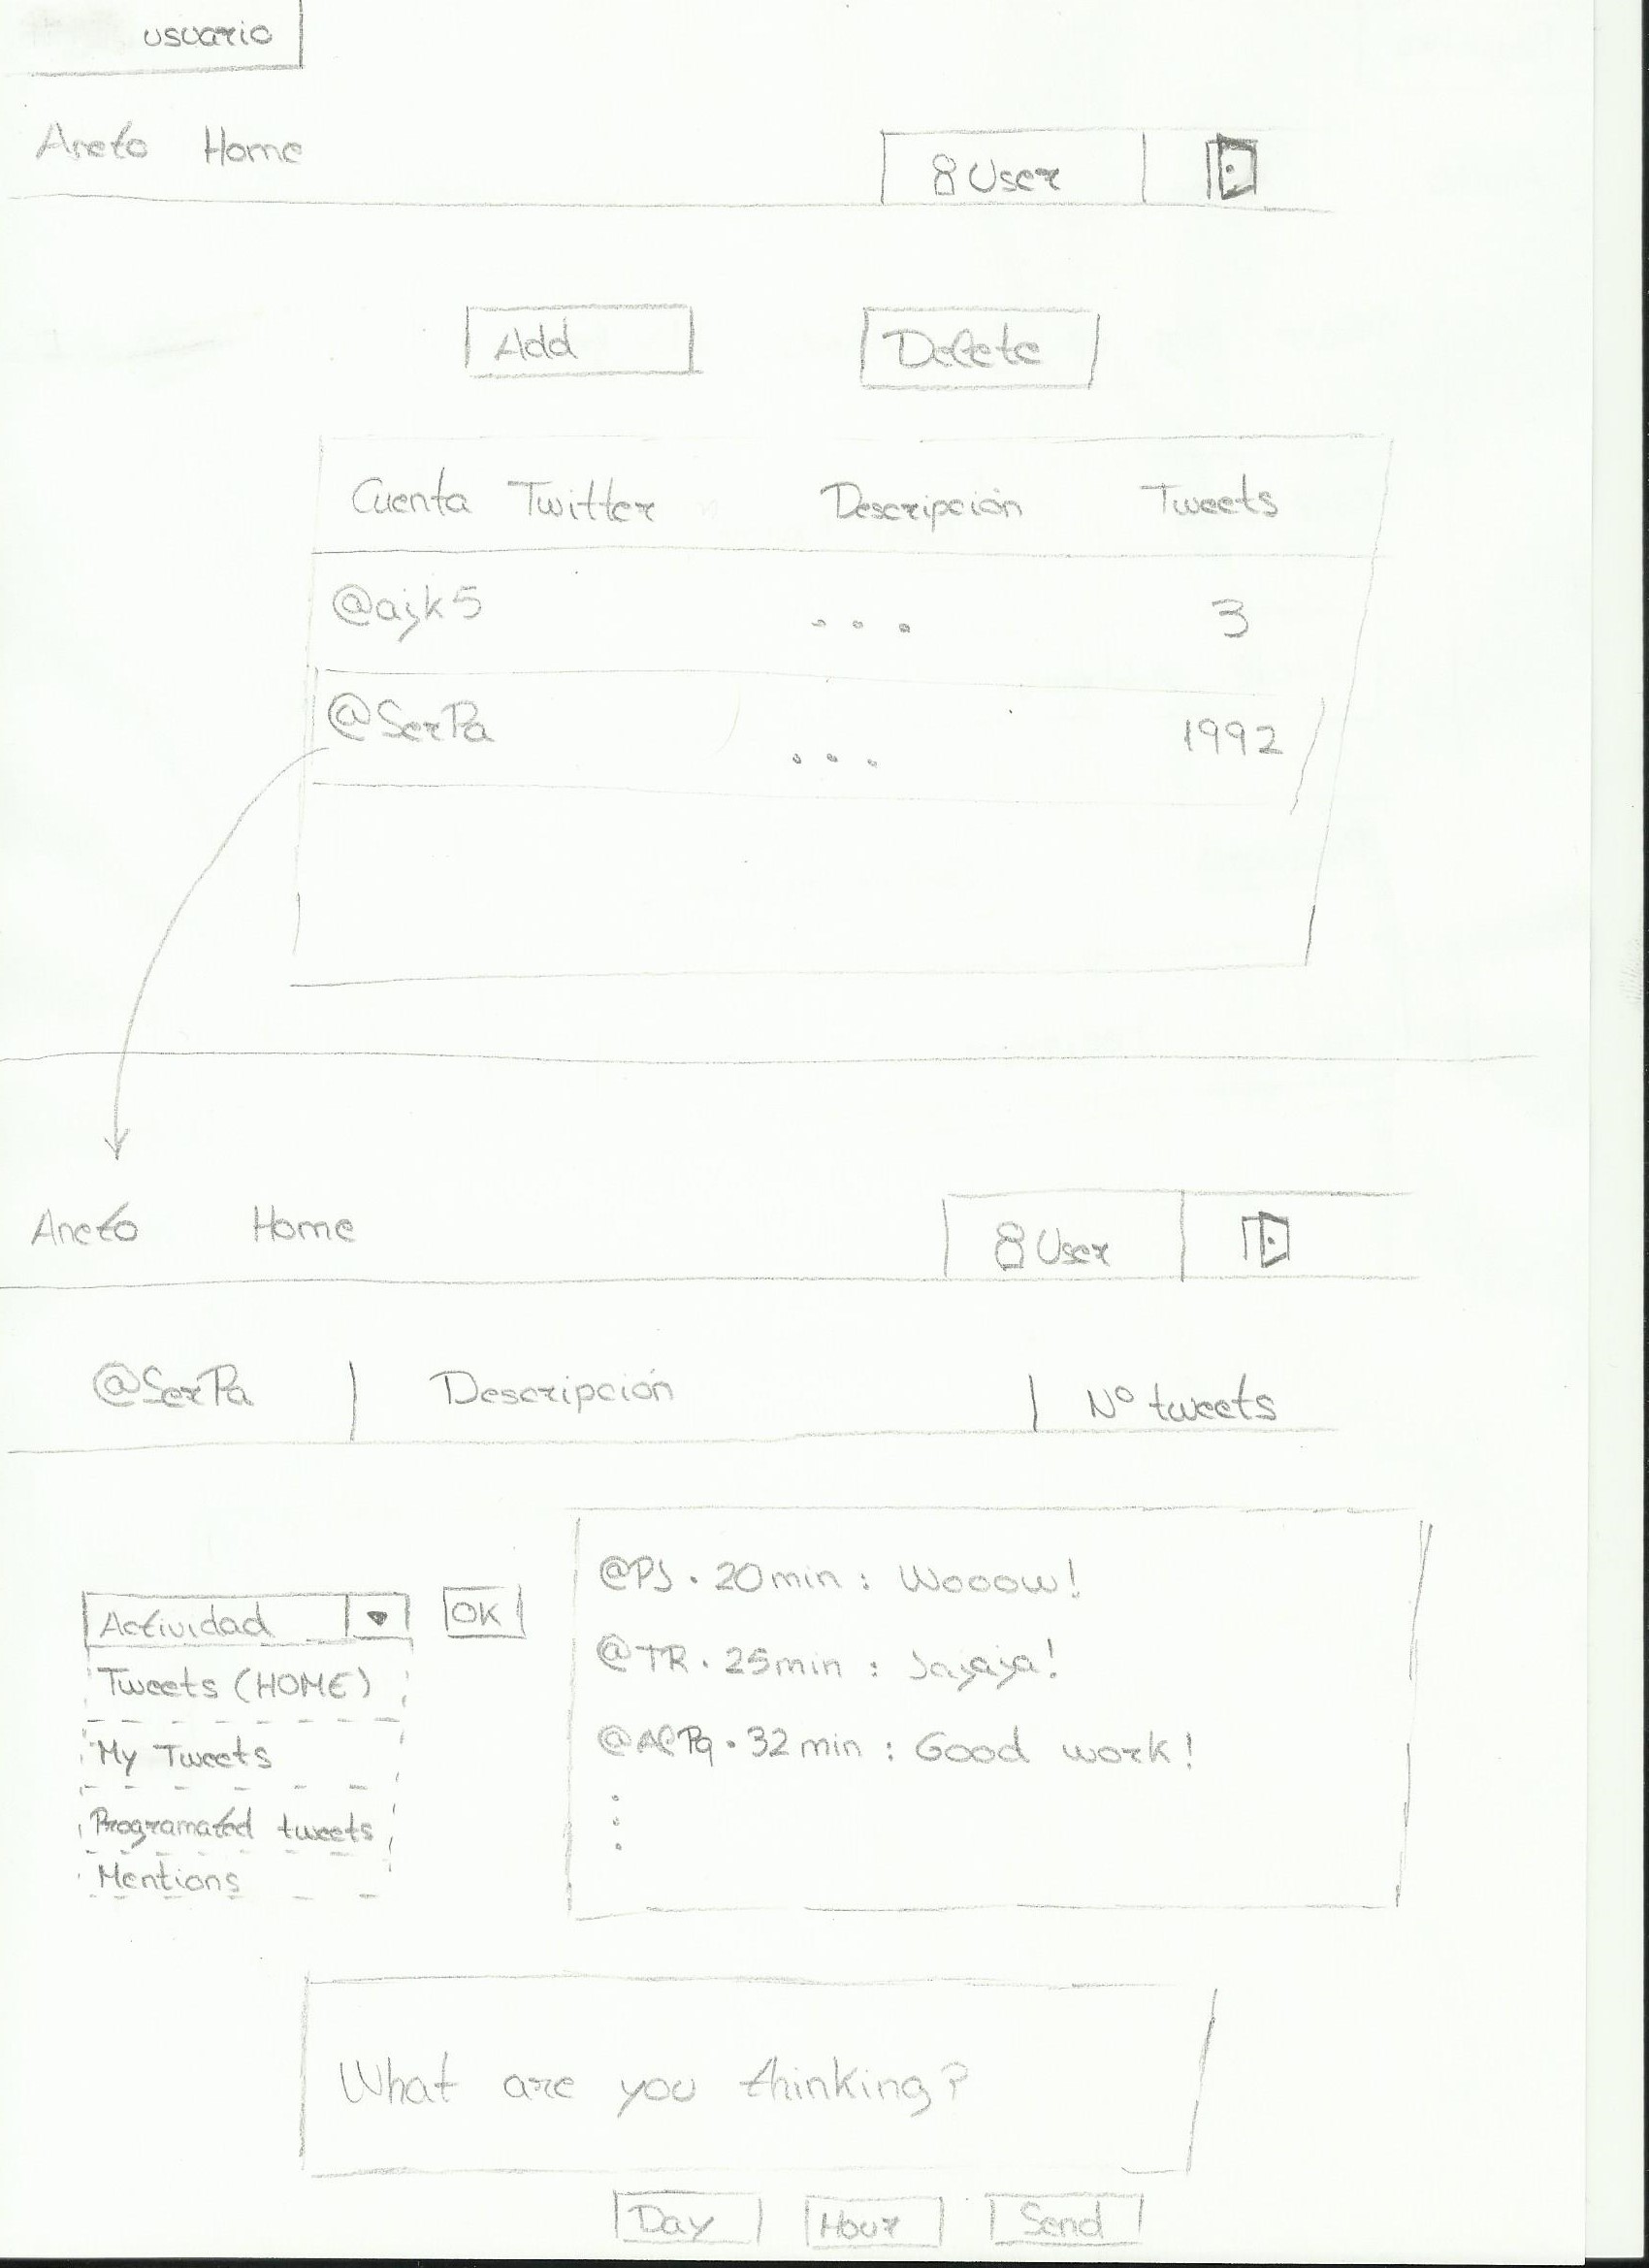 usuario
Aneto Home
User
Add Delete
Cuenta Twitter Descripción Tweets
@ajk5 ... 3
@SerPa ... 1992
Aneto Home
User
@SerPa | Descripción | Nº tweets
Actividad OK
Tweets (HOME)
My Tweets
Programated tweets
Mentions
@PJ . 20min : Wooow!
@TR . 25min : Jajaja!
@AlPq . 32 min : Good work!
What are you thinking?
Day Hour Send